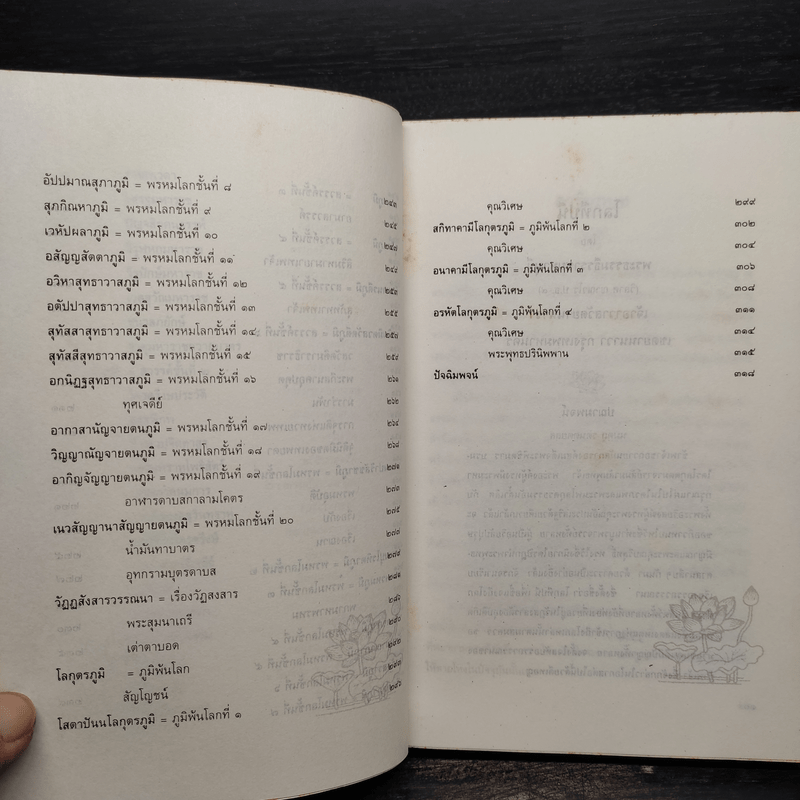 อัปปมาณสุภาภูมิ = พรหมโลกชั้นที่ ๘ ๒๔๓
สุภกิณหาภูมิ = พรหมโลกชั้นที่ ๙ ๒๔๕
เวหัปผลาภูมิ = พรหมโลกชั้นที่ ๑๐ ๒๔๗
อสัญญสัตตาภูมิ = พรหมโลกชั้นที่ ๑๑
อวิหาสุทธาวาสภูมิ = พรหมโลกชั้นที่ ๑๒ ๒๕๓
อตัปปาสุทธาวาสภูมิ = พรหมโลกชั้นที่ ๑๓ ๒๕๕
สุทัสสาสุทธาวาสภูมิ = พรหมโลกชั้นที่ ๑๔
สุทัสสีสุทธาวาสภูมิ = พรหมโลกชั้นที่ ๑๕
อกนิฏฐสุทธาวาสภูมิ = พรหมโลกชั้นที่ ๑๖ ๒๖๑
ทุศเจดีย์ ๒๖๒
อากาสานัญจายตนภูมิ = พรหมโลกชั้นที่ ๑๗ ๒๖๔
วิญญาณัญจายตนภูมิ = พรหมโลกชั้นที่ ๑๘ ๒๖๘
อากิญจัญญายตนภูมิ = พรหมโลกชั้นที่ ๑๙ ๒๗๑
อาฬารดาบสกาลามโคตร ๒๗๓
เนวสัญญานาสัญญายตนภูมิ = พรหมโลกชั้นที่ ๒๐ ๒๗๕
น้ำมันทาบาตร ๒๗๗
อุทกรามบุตรดาบส ๒๗๙
วัฏฏสังสารวรรณนา = เรื่องวัฏสงสาร ๒๘๑
พระสุมนาเถรี
เต่าตาบอด ๒๙๐
โลกุตรภูมิ = ภูมิพ้นโลก
สัญโญชน์ ๒๙๓
โสตาปันนโลกุตรภูมิ = ภูมิพ้นโลกที่ ๑ ๒๙๖
คุณวิเศษ ๒๙๙
สกิทาคามีโลกุตรภูมิ = ภูมิพ้นโลกที่ ๒ ๓๐๒
คุณวิเศษ ๓๐๔
อนาคามีโลกุตรภูมิ = ภูมิพ้นโลกที่ ๓ ๓๐๖
คุณวิเศษ ๓๐๘
อรหัตโลกุตรภูมิ = ภูมิพ้นโลกที่ ๔ ๓๑๑
คุณวิเศษ ๓๑๔
พระพุทธปรินิพพาน ๓๑๕
ปัจฉิมพจน์ ๓๑๘